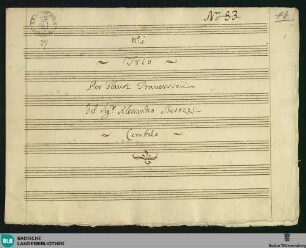 No. 83
No. i
Trio
Per flauti Traversieri
Del Sigr. Alessandro Besozzi
Cembalo
BLB
BADISCHE
LANDESBIBLIOTHEK